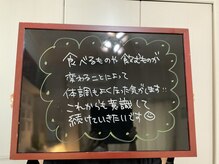 食べるものや飲むものが
変わることによって
体調もよくなった気がします!!
これからも意識して
続けていきたいです☺